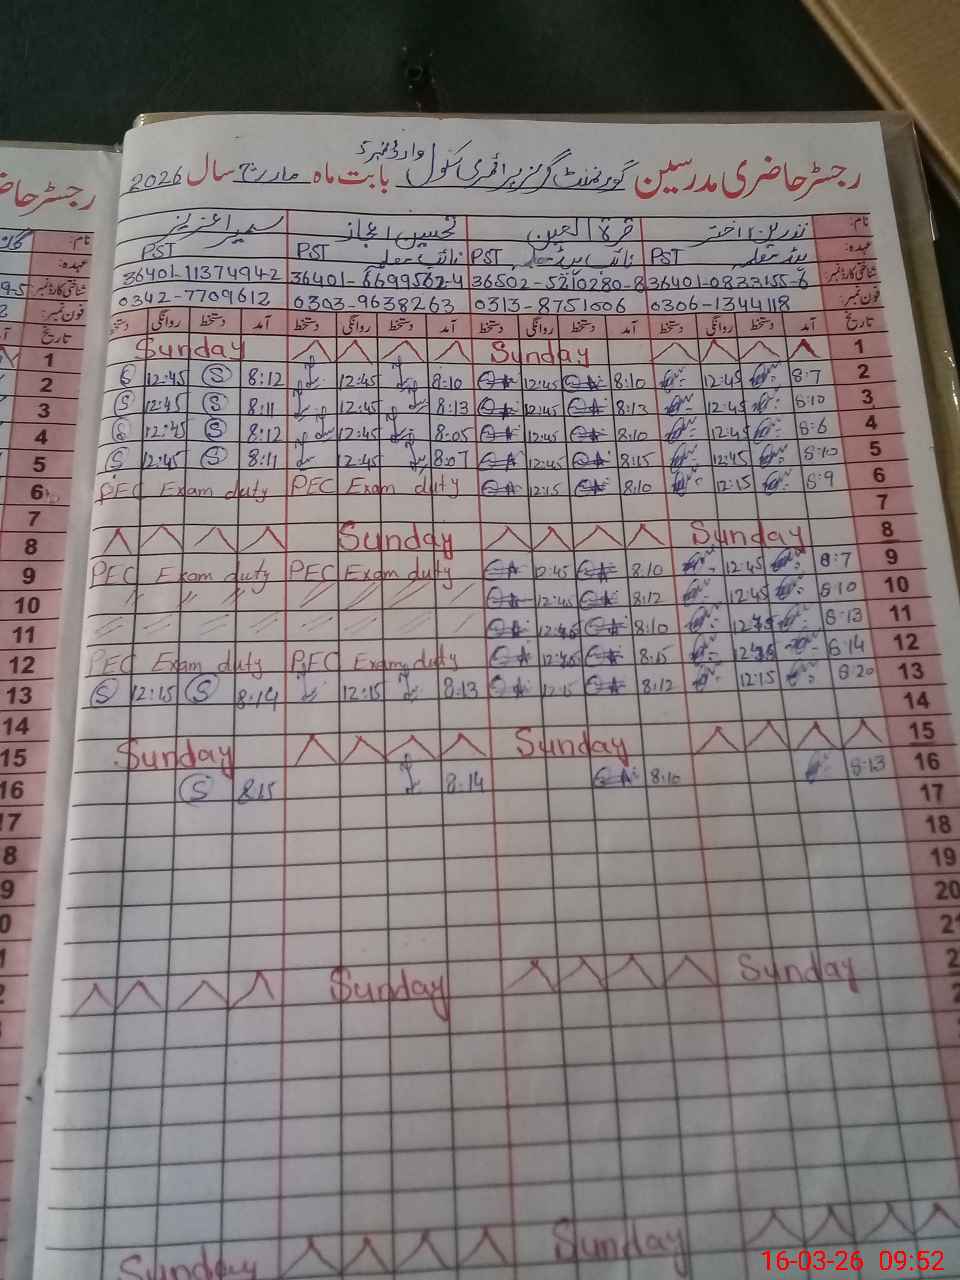 رجسٹر حاضری مدرسین گورنمنٹ گرلز پرائمری سکول وارڈ نمبر 5 بابت ماہ مارچ سال 2026
نام: نسرین اختر قرۃ العین تحسین اعجاز سمیرا عزیز
عہدہ: ہیڈ معلمہ PST نائب ہیڈ معلمہ PST نائب معلمہ PST PST
شناختی کارڈ نمبر: 36401-0833155-6 36502-5210280-8 36401-6699562-4 36401-1137494-2
فون نمبر: 0306-1344118 0313-8751006 0303-9638263 0342-7709612
تاریخ آمد دستخط روانگی دستخط آمد دستخط روانگی دستخط آمد دستخط روانگی دستخط آمد دستخط روانگی دستخط
1 Sunday Sunday
2 8:7 12:45 8:10 12:45 8:10 12:45 8:12 S 12:45
3 8:10 12:45 8:13 12:45 8:13 12:45 8:11 S 12:45 S
4 8:6 12:45 8:10 12:45 8:05 12:45 8:12 S 12:45
5 8:10 12:45 8:15 12:45 8:07 12:45 8:11 S 12:45 S
6 8:9 12:15 8:10 12:15 PEC Exam duty PEC Exam duty
7
8 Sunday Sunday
9 8:7 12:45 8:10 12:45 PEC Exam duty PEC Exam duty
10 8:10 12:45 8:12 12:45
11 8:13 8:10
12 8:14 8:15 PEC Exam duty PEC Exam duty
13 8:20 12:15 8:12 12:15 8:13 12:15 8:14 S 12:15 S
14
15 Sunday Sunday
16 8:13 8:10 8:14 8:15 S
17
18
19
20
Sunday Sunday
Sunday Sunday
16-03-26 09:52